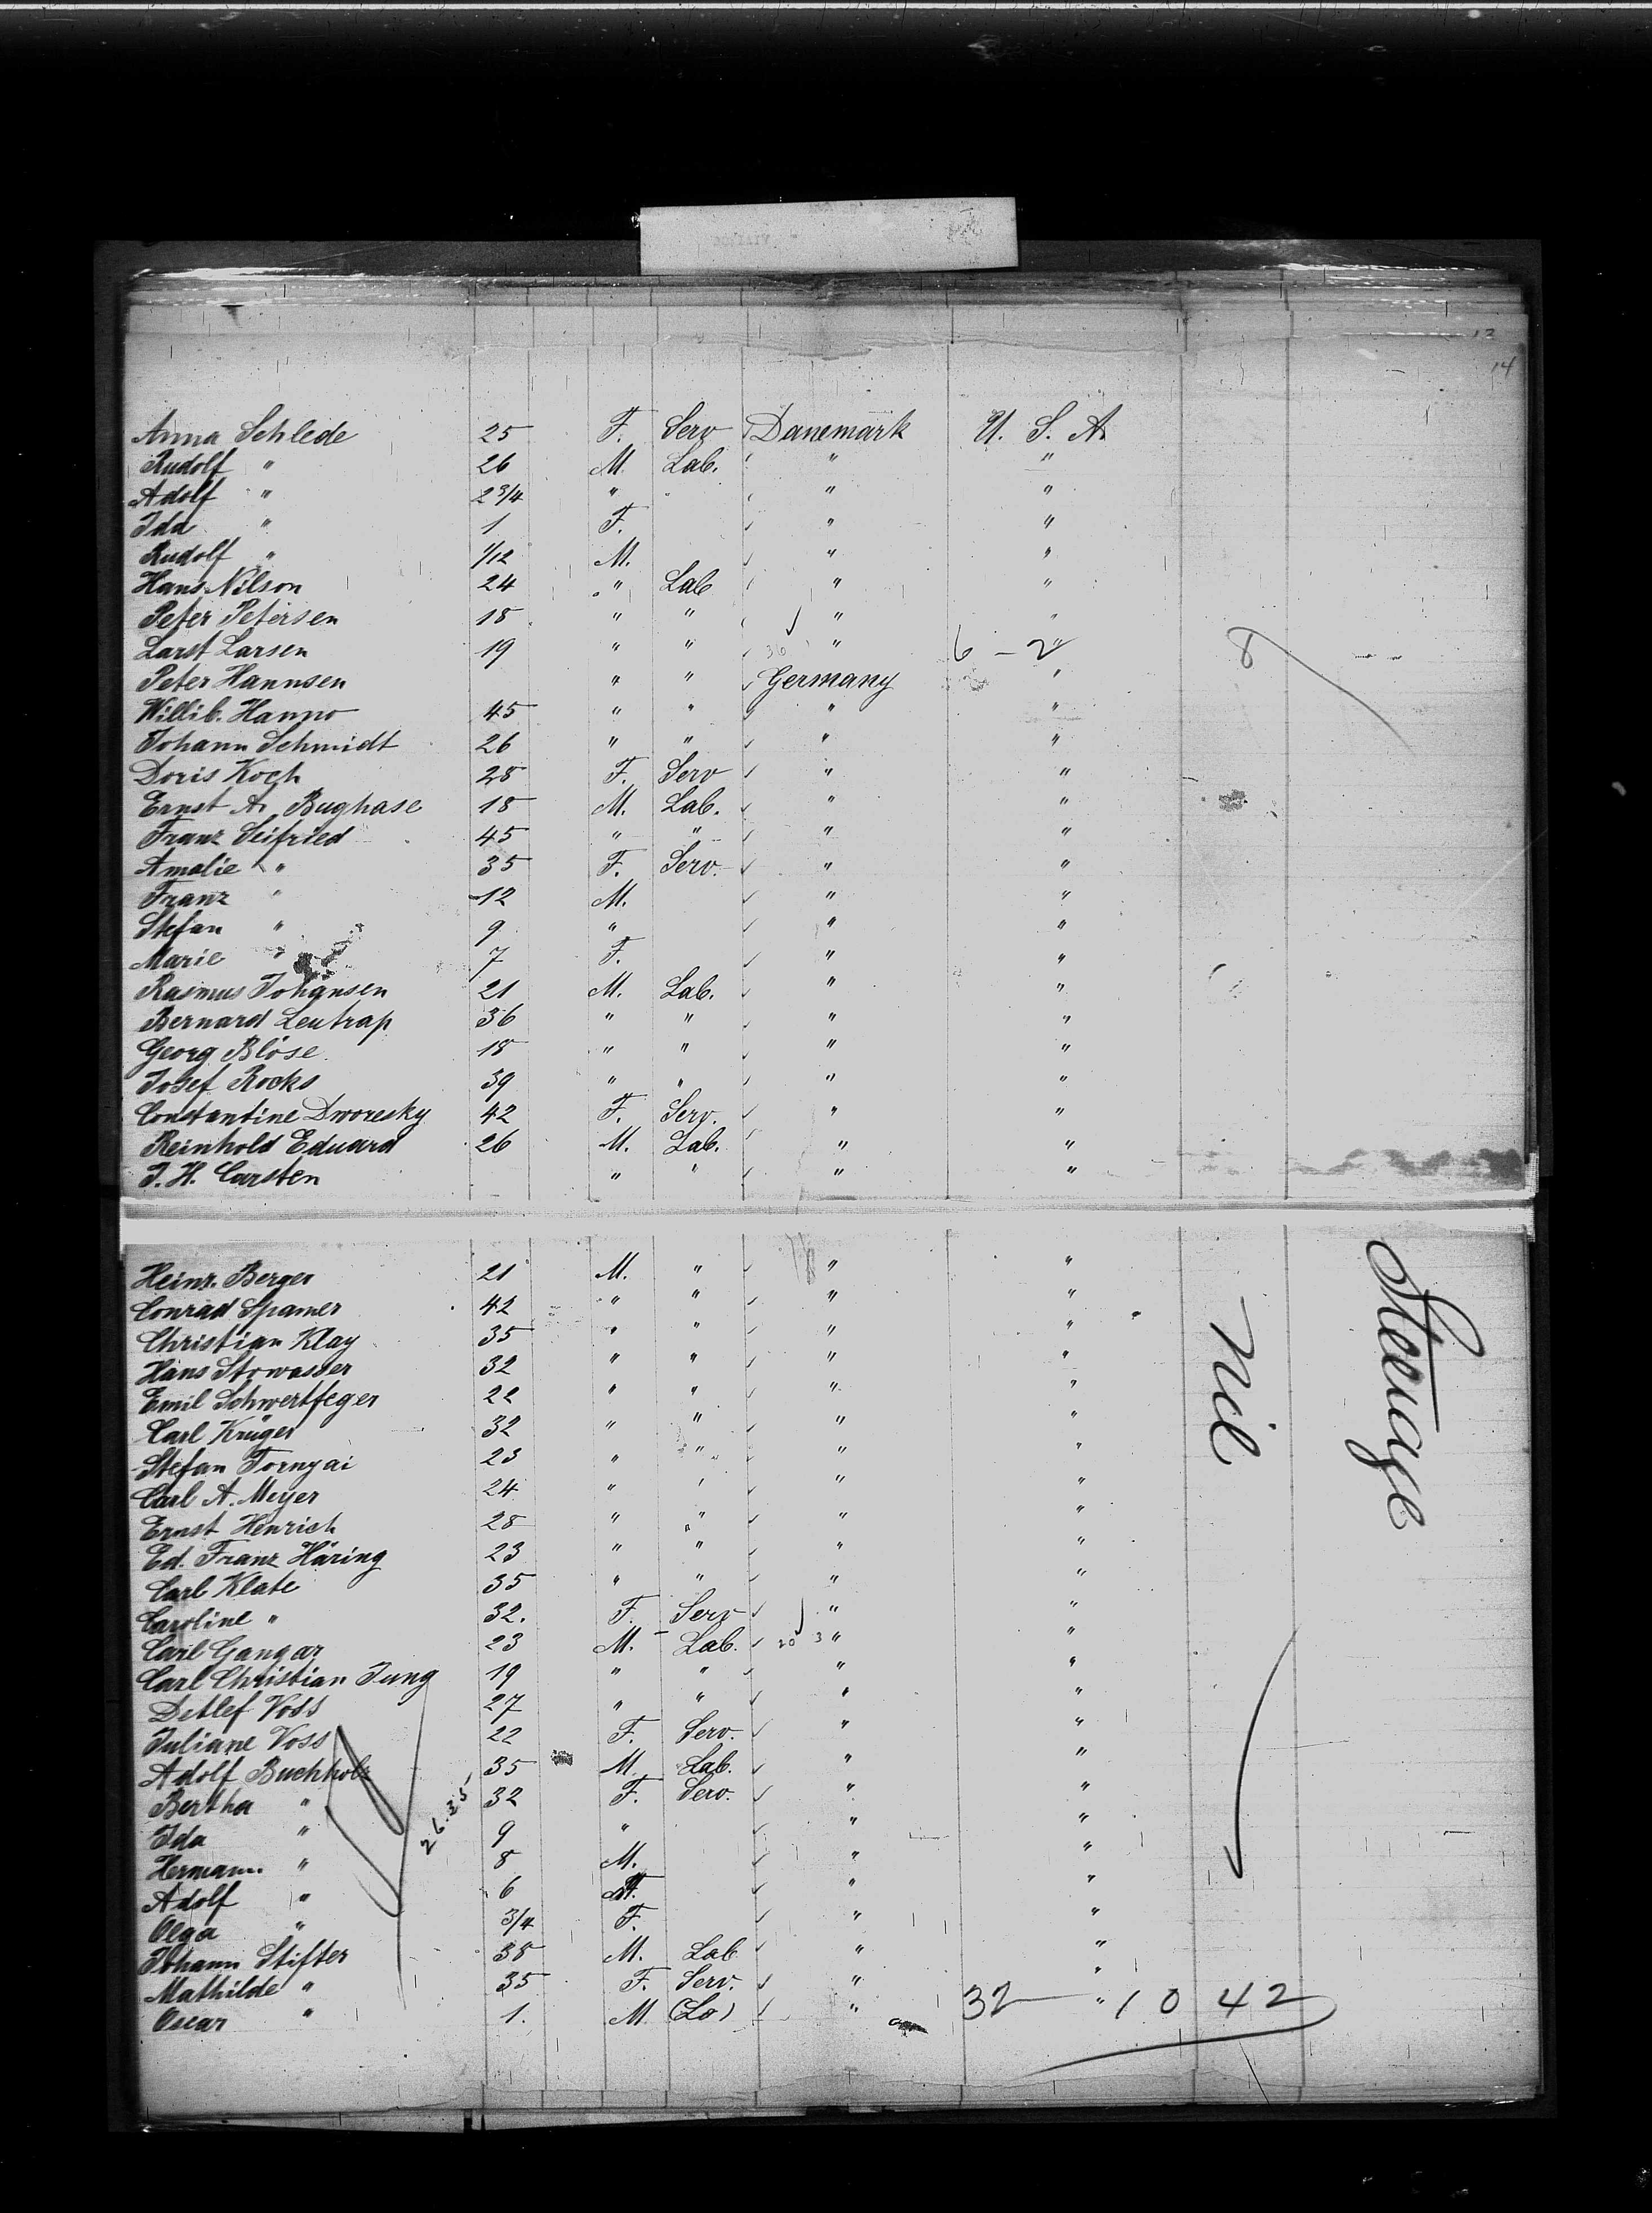 12
14
Anna Schlede 25 F. Serv Danemark U. S. A.
Rudolf " 26 M. Lab. " "
Adolf " 2 3/4 " " "
Ida " 1 F. " "
Rudolf " 1/12 M. " "
Hans Nilson 24 " Lab " "
Peter Petersen 18 " " " "
Larst Larsen 19 " " " 6 – 2 " 8
Peter Hannsen " " Germany "
Willib. Hanno 45 " " " "
Johann Schmidt 26 " " " "
Doris Koch 28 F. Serv " "
Ernst A. Bughase 18 M. Lab. " "
Franz Seifried 45 " " " "
Amalie " 35 F. Serv. " "
Franz " 12 M. " "
Stefan " 9 " " "
Marie " 7 F. " "
Rasmus Johansen 21 M. Lab. " "
Bernard Leutrap 36 " " " "
Georg Blöse 18 " " " "
Josef Rocks 39 " " " "
Constantine Dworesky 42 F. Serv. " "
Reinhold Eduard 26 M. Lab. " "
J. H. Carsten " " " "
Heinr. Berger 21 M. " " "
Conrad Spamer 42 " " " "
Christian Klay 35 " " " "
Hans Stowasser 32 " " " "
Emil Schwertfeger 22 " " " "
Carl Krüger 32 " " " "
Stefan Tornyai 23 " " " "
Carl A. Meyer 24 " " " "
Ernst Henrich 28 " " " "
Ed. Franz Häring 23 " " " "
Carl Klate 35 " " " "
Caroline " 32. F. Serv " "
Carl Gangar 23 M. Lab. 20 3 " "
Carl Christian Jung 19 " " " "
Detlef Voss 27 " " " "
Juliane Voss 22 F. Serv. " "
Adolf Buchholz 35 M. Lab. " "
Bertha " 32 F. Serv. " "
Ida " 9 " " "
Hermann " 8 M. " "
Adolf " 6 M. " "
Olga " 3/4 F. " "
Johann Stifter 38 M. Lab " "
Mathilde " 35 F. Serv. " "
Oscar " 1. M. " 32 " 10 42
nil
Steerage